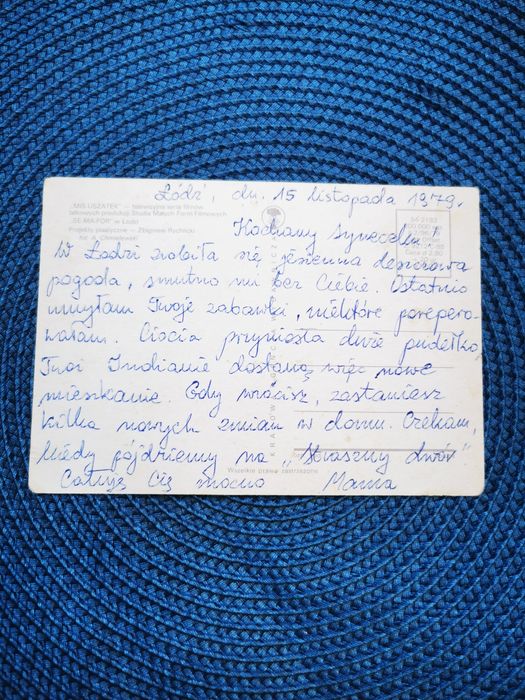 „MIŚ USZATEK” — telewizyjna seria filmów
lalkowych produkcji Studia Małych Form Filmowych
„SE-MA-FOR” w Łodzi
Projekty plastyczne — Zbigniew Rychlicki
Łódź, dn. 15 listopada 1979.
Kochany Syneczku!
W Łodzi zrobiła się jesienna deszczowa
pogoda, smutno mi bez Ciebie. Ostatnio
umyłam Twoje zabawki, niektóre porepero-
wałam. Ciocia przyniosła duże pudełko,
Twoi Indianie dostaną więc nowe
mieszkanie. Gdy wrócisz, zastaniesz
kilka nowych zmian w domu. Czekam,
kiedy pójdziemy na „Straszny dwór”
Całuję Cię mocno Mama
Wszelkie prawa zastrzeżone